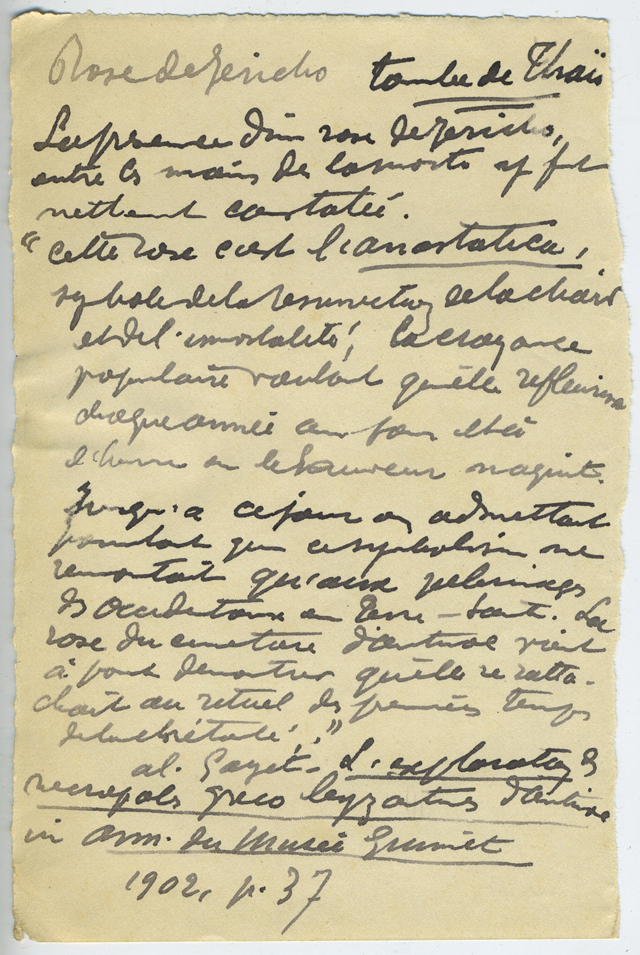 Rose de Jéricho tombe de Thaïs
La présence d'un rose de Jéricho,
entre les mains de la morte y fut
nettement constatée.
"Cette rose c'est l'anastatica,
symbole de la résurrection de la chair
et de l'immortalité, la croyance
populaire voulant qu'elle refleurisse
chaque année au jour et à
l'heure où le Sauveur naquit.
Jusqu'à ce jour on admettait
pourtant que ce symbolisme ne
remontait qu'aux pèlerinages
des occidentaux en Terre-Sainte. La
rose du cimetière d'Antinoé vient
à point démontrer qu'elle se ratta-
chait au rituel des premiers temps
de la chrétienté."
al. Gayet - L'exploration des
nécropoles gréco byzantines d'Antinoé
in ann. du Musée Guimet
1902, p. 37